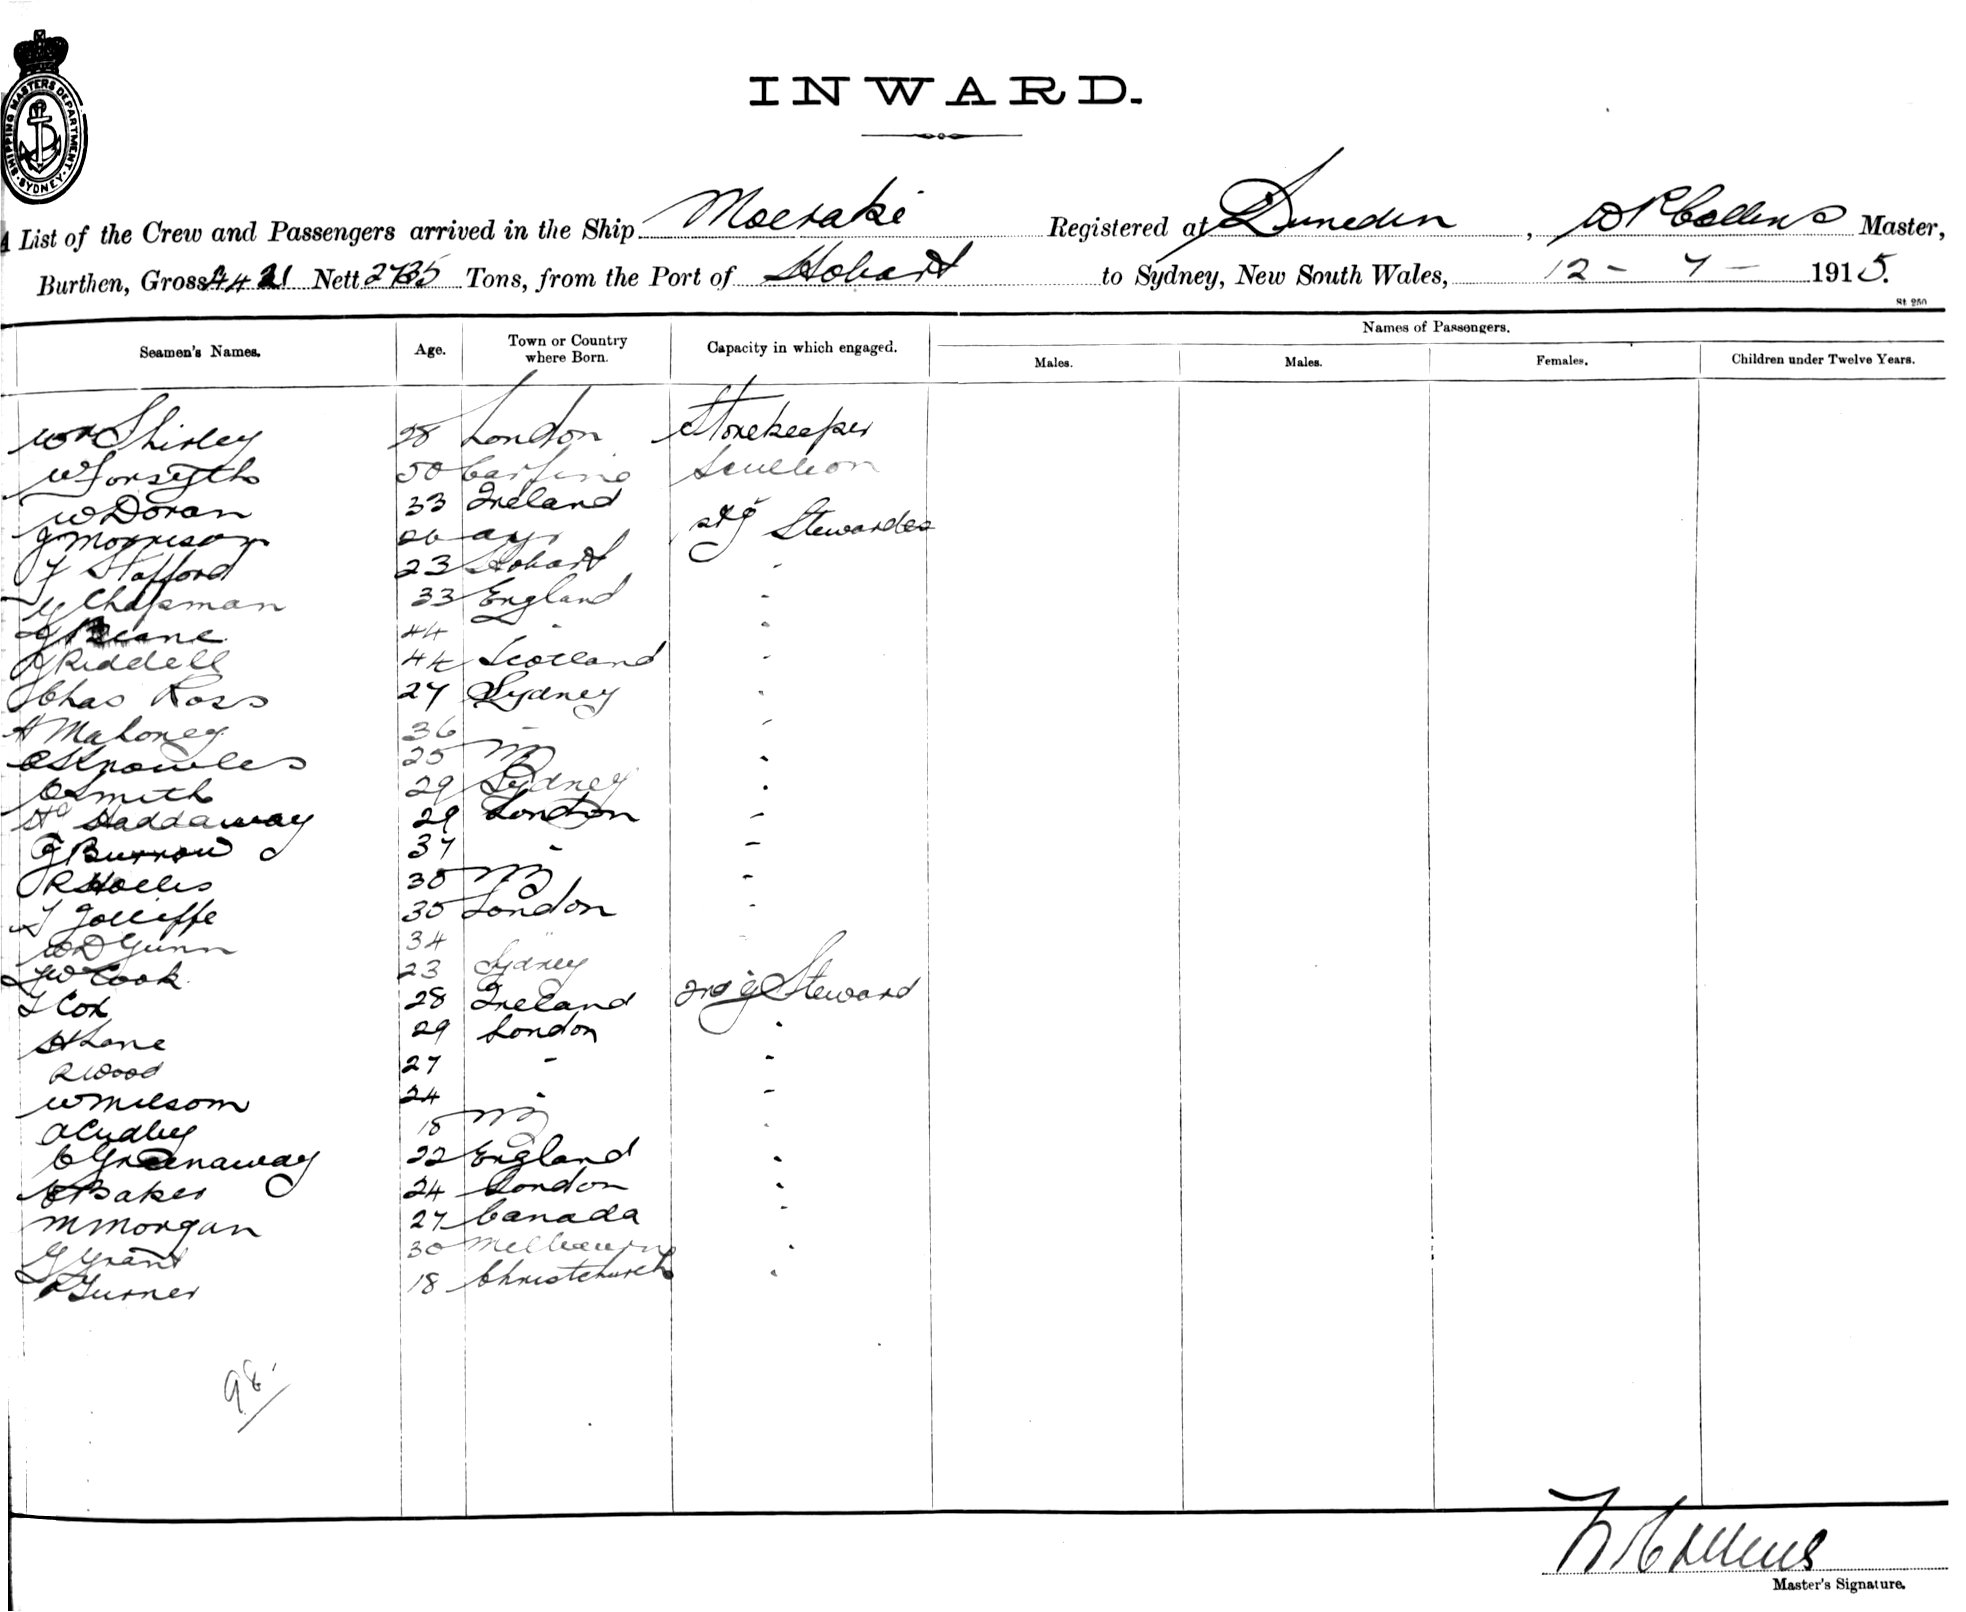 INWARD.
SHIPPING MASTERS DEPARTMENT. SYDNEY.
A List of the Crew and Passengers arrived in the Ship Moeraki Registered at Dunedin, W P Collins Master,
Burthen, Gross 4421 Nett 2735 Tons, from the Port of Hobart to Sydney, New South Wales, 12 - 7 - 1915.
St. 250
Seamen's Names. Age. Town or Country where Born. Capacity in which engaged. Names of Passengers.
Males. Males. Females. Children under Twelve Years.
Wm Shirley 28 London Storekeeper
W Forsyth 50 Scullion
W Doran 33 Ireland
J Morrison 26 Ayr Stewardes
F Stafford 23 Hobart -
G Chapman 33 England -
44 - -
J Riddell 44 Scotland -
Chas Ross 27 Sydney -
H Mahoney 36 - -
C S Knowles 25 NZ -
C Smith 29 Sydney -
Hd Haddaway 29 London -
G Burrow 37 - -
R Hollis 30 NZ -
T Jolliffe 35 London -
W D Gunn 34
J W Cook 23 Sydney
T Cox 28 Ireland 2nd g Steward
H Lane 29 London -
R Wood 27 - -
W Milsom 24 - -
A Cudby 18 NZ -
C Greenaway 22 England -
E Baker 24 London -
M Morgan 27 Canada -
G Grant 30 Melbourne -
R Turner 18 Christchurch -
98
W P Collins
Master's Signature.